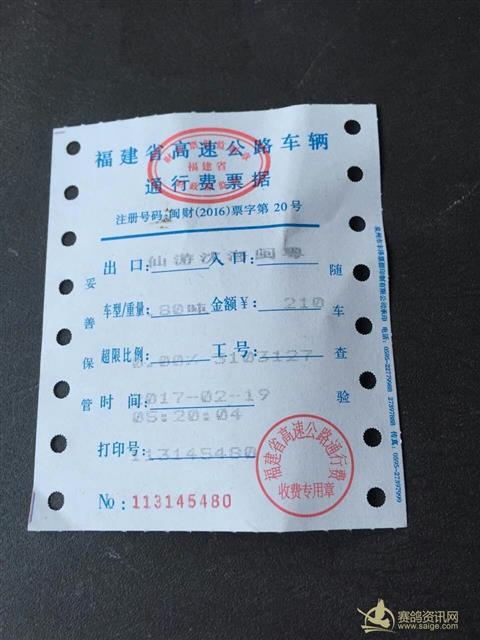 福建省高速公路车辆
通行费票据
福建省
注册号码:闽财(2016)票字第20号
出口: 仙游 入口: 闽粤
车型/重量: 80吨 金额¥: 210
超限比例: 0.00% 工号: 3103127
时间: 017-02-19
05:20:04
打印号: 113145480
No: 113145480
妥善保管
随车查验
福建省高速公路通行费
收费专用章
赛鸽资讯网
www.saige.com